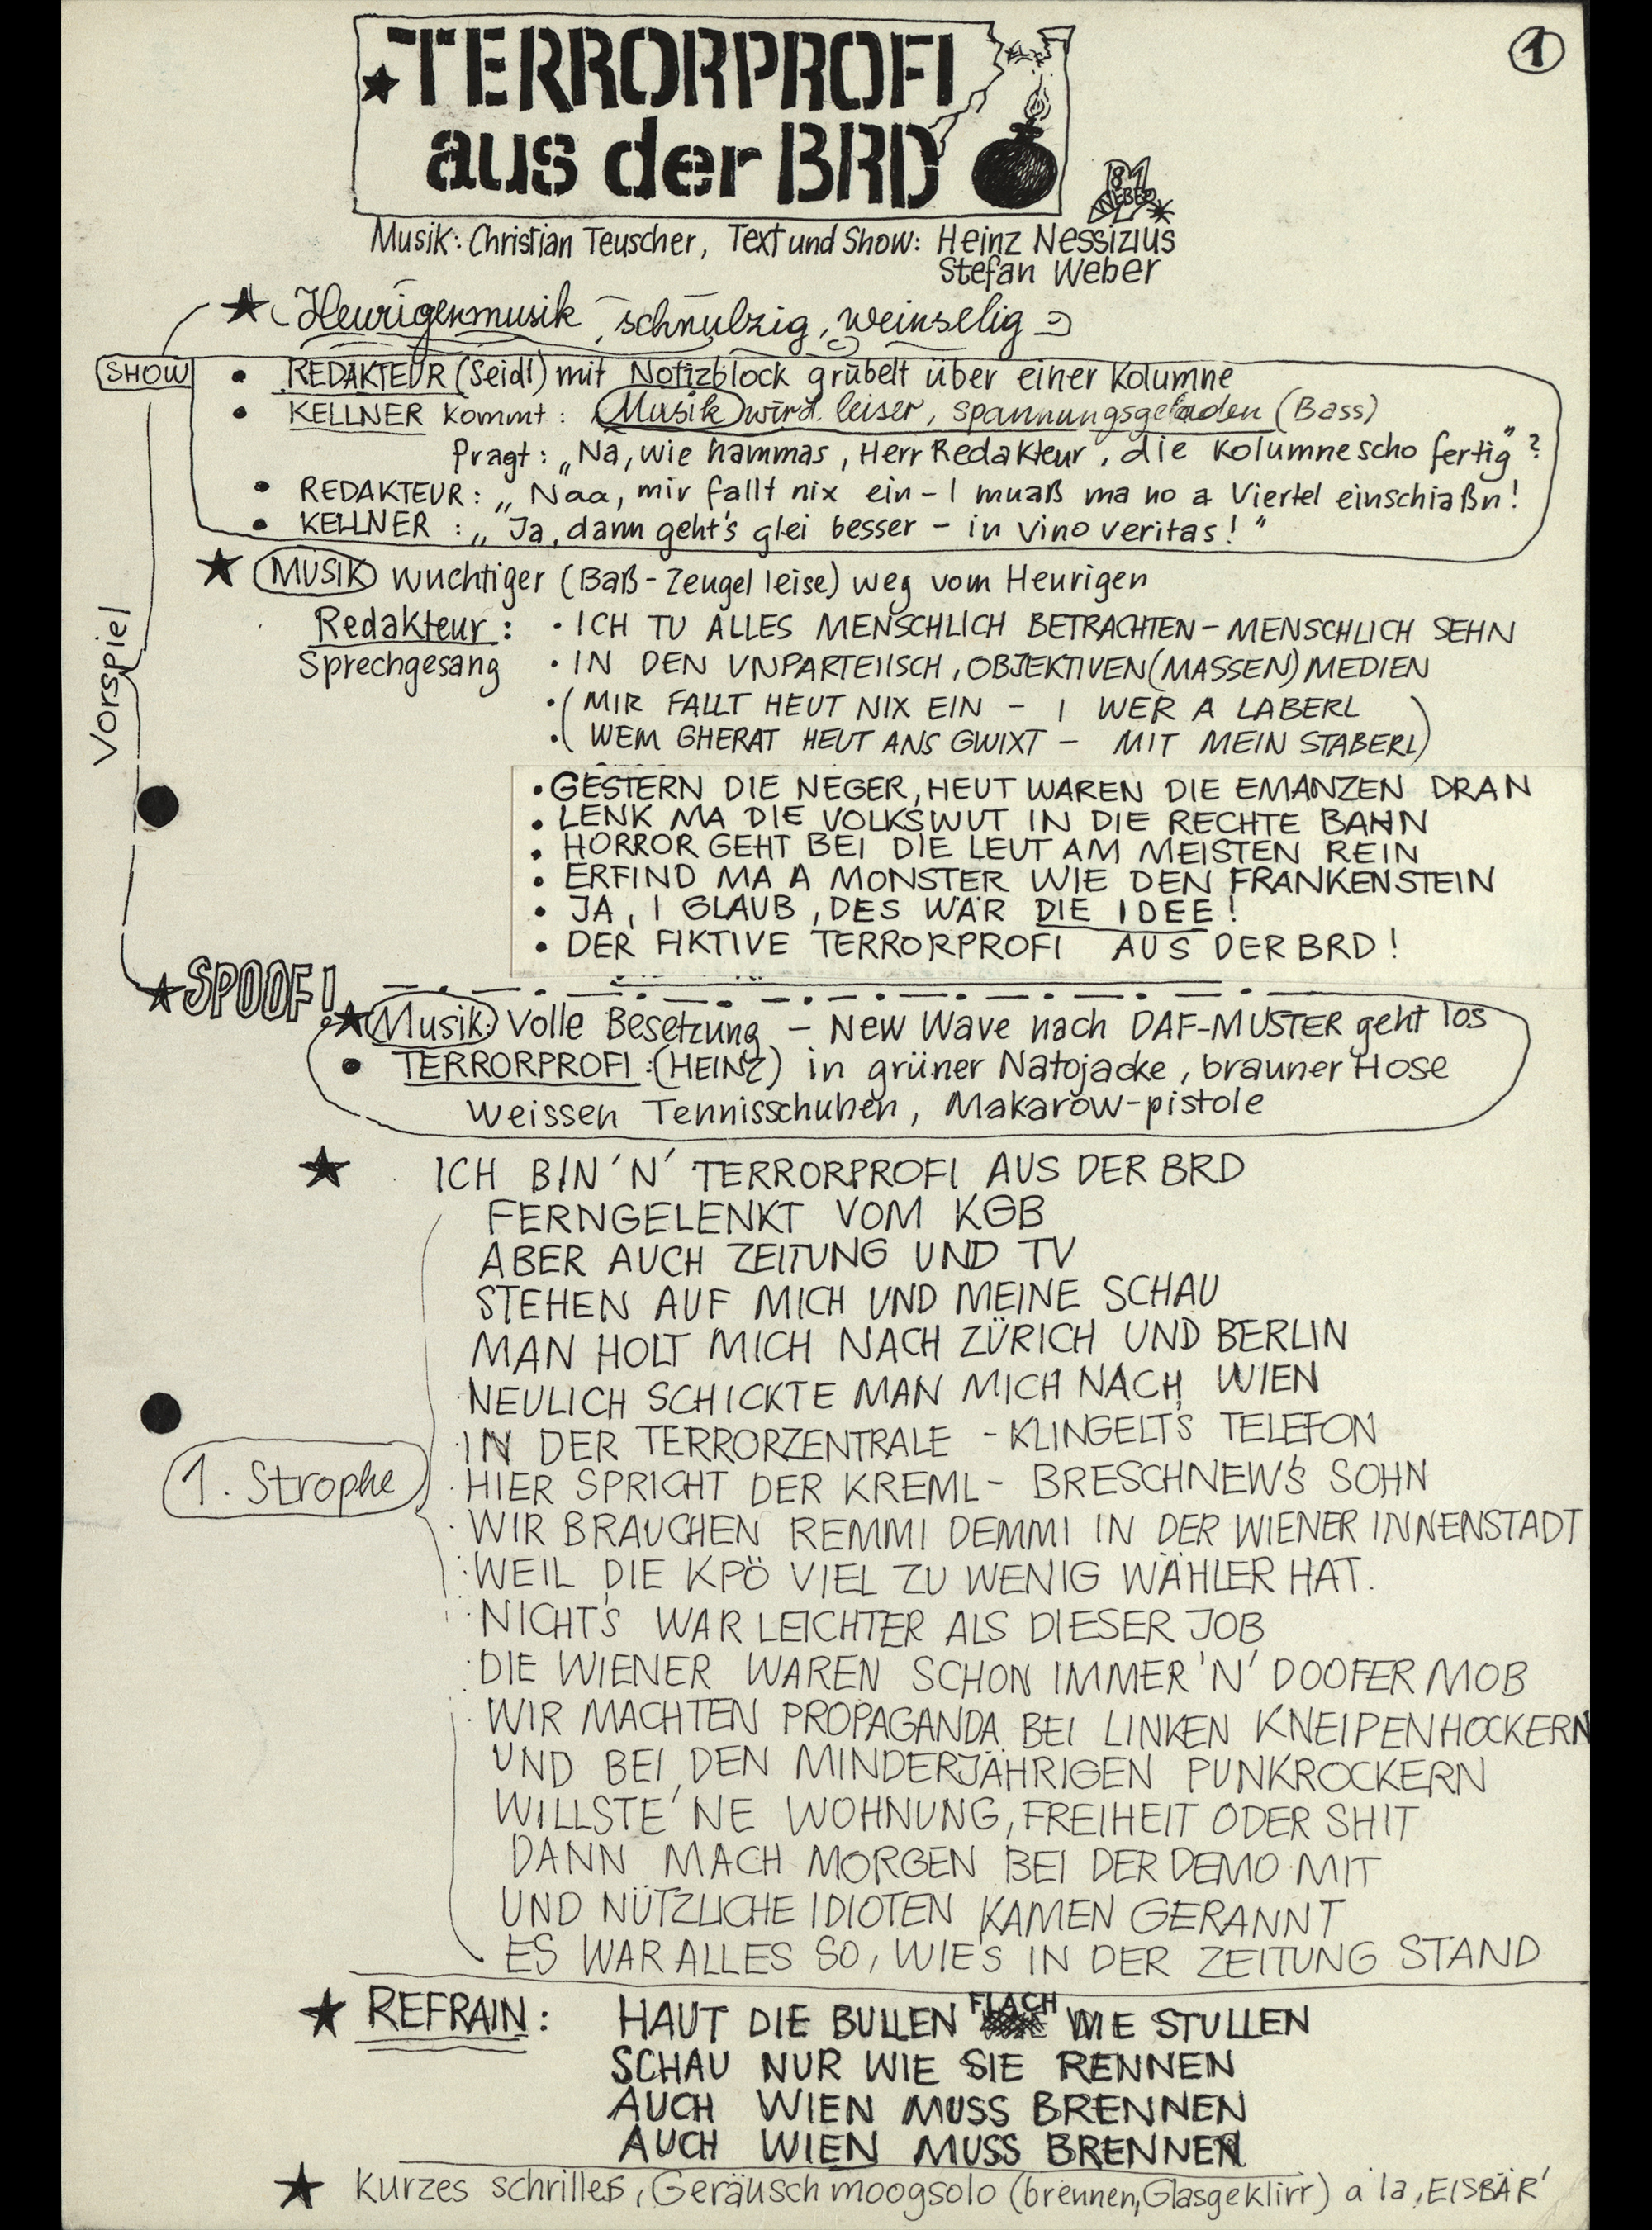 1
TERRORPROFI
aus der BRD
81
WEBER
Musik: Christian Teuscher, Text und Show: Heinz Nessizius
Stefan Weber
Heurigenmusik, schnulzig, weinselig
SHOW
• REDAKTEUR (Seidl) mit Notizblock grübelt über einer Kolumne
• KELLNER kommt: Musik wird leiser, spannungsgeladen (Bass)
Fragt: „Na, wie hammas, Herr Redakteur, die Kolumne scho fertig"?
• REDAKTEUR: „Naa, mir fallt nix ein – I muaß ma no a Viertel einschiaßn!
• KELLNER: „Ja, dann geht's glei besser – in vino veritas!"
MUSIK wuchtiger (Baß-Zeugel leise) weg vom Heurigen
Vorspiel
Redakteur: • ICH TU ALLES MENSCHLICH BETRACHTEN – MENSCHLICH SEHN
Sprechgesang • IN DEN UNPARTEIISCH, OBJEKTIVEN (MASSEN) MEDIEN
• (MIR FALLT HEUT NIX EIN – I WER A LABERL
• (WEM GHERAT HEUT ANS GWIXT – MIT MEIN STABERL)
• GESTERN DIE NEGER, HEUT WAREN DIE EMANZEN DRAN
• LENK MA DIE VOLKSWUT IN DIE RECHTE BAHN
• HORROR GEHT BEI DIE LEUT AM MEISTEN REIN
• ERFIND MA A MONSTER WIE DEN FRANKENSTEIN
• JA, I GLAUB, DES WÄR DIE IDEE!
• DER FIKTIVE TERRORPROFI AUS DER BRD!
SPOOF!
Musik: Volle Besetzung – New Wave nach DAF-MUSTER geht los
• TERRORPROFI: (HEINZ) in grüner Natojacke, brauner Hose
weissen Tennisschuhen, Makarow-pistole
ICH BIN 'N' TERRORPROFI AUS DER BRD
FERNGELENKT VOM KGB
ABER AUCH ZEITUNG UND TV
STEHEN AUF MICH UND MEINE SCHAU
MAN HOLT MICH NACH ZÜRICH UND BERLIN
NEULICH SCHICKTE MAN MICH NACH WIEN
IN DER TERRORZENTRALE – KLINGELT'S TELEFON
1. Strophe
HIER SPRICHT DER KREML – BRESCHNEW'S SOHN
WIR BRAUCHEN REMMI DEMMI IN DER WIENER INNENSTADT
WEIL DIE KPÖ VIEL ZU WENIG WÄHLER HAT.
NICHT'S WAR LEICHTER ALS DIESER JOB
DIE WIENER WAREN SCHON IMMER 'N' DOOFER MOB
WIR MACHTEN PROPAGANDA BEI LINKEN KNEIPENHOCKERN
UND BEI DEN MINDERJÄHRIGEN PUNKROCKERN
WILLSTE 'NE WOHNUNG, FREIHEIT ODER SHIT
DANN MACH MORGEN BEI DER DEMO MIT
UND NÜTZLICHE IDIOTEN KAMEN GERANNT
ES WAR ALLES SO, WIE'S IN DER ZEITUNG STAND
REFRAIN: HAUT DIE BULLEN FLACH WIE STULLEN
SCHAU NUR WIE SIE RENNEN
AUCH WIEN MUSS BRENNEN
AUCH WIEN MUSS BRENNEN
Kurzes schrilles, Geräusch moogsolo (brennen, Glasgeklirr) a la ‚EISBÄR'